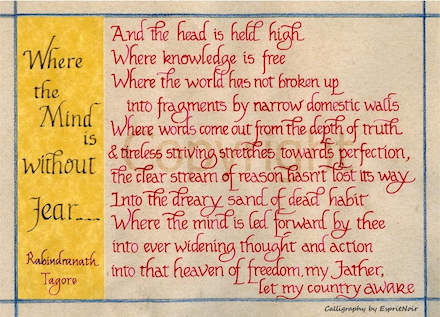 Where
the
Mind
is
without
Fear....
Rabindranath
Tagore
And the head is held high
Where knowledge is free
Where the world has not broken up
into fragments by narrow domestic walls
Where words come out from the depth of truth
& tireless striving stretches, towards perfection,
the clear stream of reason hasn't lost its way
Into the dreary sand of dead habit
Where the mind is led forward by thee
into ever widening thought and action
into that heaven of freedom, my Father,
let my country awake
Calligraphy by EspritNoir